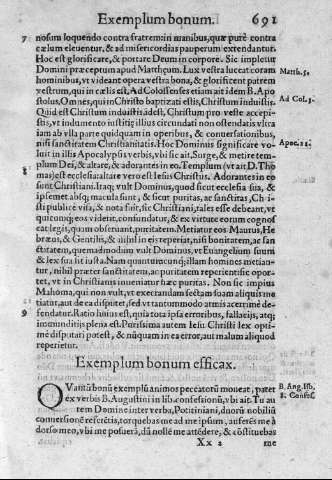 Exemplum bonum. 691
7 nosum loquendo contra fratrem: ni manibus, quæ puræ contra
cælum eleuentur, & ad misericordias pauperum extendantur.
Hoc est glorificare, & portare Deum in corpore. Sic impletur
Domini præceptum apud Matthæum. Lux vestra luceat coram Matth. 5.
hominibus, vt videant opera vestra bona, & glorificent patrem
vestrum, qui in cælis est, Ad Colossenses etiam ait idem B. Apo
stolus, Omnes, qui in Christo baptizati estis, Christum induistis. Ad Col. 3.
Quid est Christum induistis: idest, Christum pro veste accepi-
stis, vt indumento iustitię illius circundati non ostendatis vltra
iam ab vlla parte quidquam in operibus, & conuersationibus,
nisi sanctitatem Christianitatis. Hoc Dominus significare vo- Apoc. 11.
luit in illis Apocalypsis verbis, vbi sic ait, Surge, & metire tem-
plum Dei, & altare, & adorantes in eo. Templum (vt ait D. Tho
8 mas) est ecclesia: altare vero est Iesus Christus. Adorantes in eo
sunt Christiani. Itaq; vult Dominus, quod sicut ecclesia sua, &
ipsemet absq; macula sunt, & sicut puritas, ac sanctitas, Chri-
sti publicè visi, & nota fuit, sic Christiani, tales esse debeant, vt
quicumq; eos viderit, confundatur, & ex virtute eorum cognos
cat legis, quam obseruant, puritatem. Metitur eos Maurus, He
bræus, & Gentilis, & nihil in eis reperiat, nisi bonitatem, ac san
ctitatem, quemadmodum vult Dominus, vt Euangelium suum
& lex sua sit iusta. Nam quantumcunq; illam homines metian-
tur, nihil præter sanctitatem, ac puritatem reperientur: sic opor
tet, vt in Christianis inueniatur hæc puritas. Non sic impius
Mahoma, qui non vult, vt execrandam sectam suam aliquis me
tiatur, aut de ea disputet, sed vt tantummodo armis acerrimè de-
9 fendatur. Ratio huius est, quia tota ipsa erroribus, fallacijs, atq;
immunditijs plena est. Purissima autem Iesu Christi lex opti-
mè disputari potest, & nūquam in ea error, aut malum aliquod
reperietur.
Exemplum bonum efficax.
QVantū bonū exemplū animos peccatorū moueat, patet B. Ang. lib.
ex verbis B. Augustini in lib. confessionū, vbi ait. Tu au 8. Confes.
tem Domine inter verba, Potitiniani, duorū nobiliū
conuersionē referētis, torquebas me ad me ipsum, auferēs me à
dorso meo, vbi me posuerā, dū nollē me attēdere, & cōstituebas
Xx 2 me